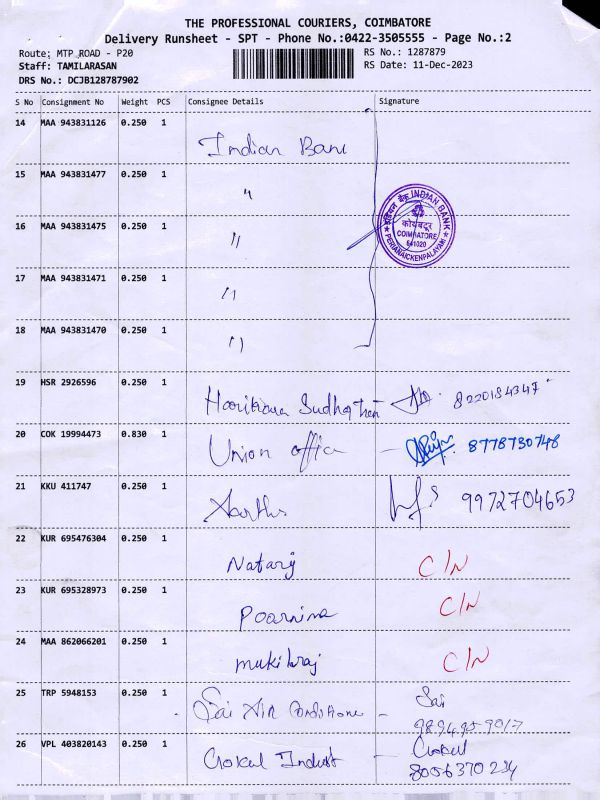 THE PROFESSIONAL COURIERS, COIMBATORE
Delivery Runsheet - SPT - Phone No.:0422-3505555 - Page No.:2
Route: MTP ROAD - P20 RS No.: 1287879
Staff: TAMILARASAN RS Date: 11-Dec-2023
DRS No.: DCJB128787902
S No Consignment No Weight PCS Consignee Details Signature
14 MAA 943831126 0.250 1
Indian Bank
15 MAA 943831477 0.250 1
"
16 MAA 943831475 0.250 1
"
इंडियन बैंक INDIAN BANK
कोयंबटूर
COIMBATORE
641020
PERIANAICKENPALAYAM
17 MAA 943831471 0.250 1
"
18 MAA 943831470 0.250 1
"
19 HSR 2926596 0.250 1
8220184347
20 COK 19994473 0.830 1
Union office - 8778730748
21 KKU 411747 0.250 1
9972704653
22 KUR 695476304 0.250 1
Nataraj C/N
23 KUR 695328973 0.250 1
Poarnima C/N
24 MAA 862066201 0.250 1
mukilraj C/N
25 TRP 5948153 0.250 1
Sai Air Conditione - Sai
26 VPL 403820143 0.250 1
Gokul Indust - Gokul
8056370234